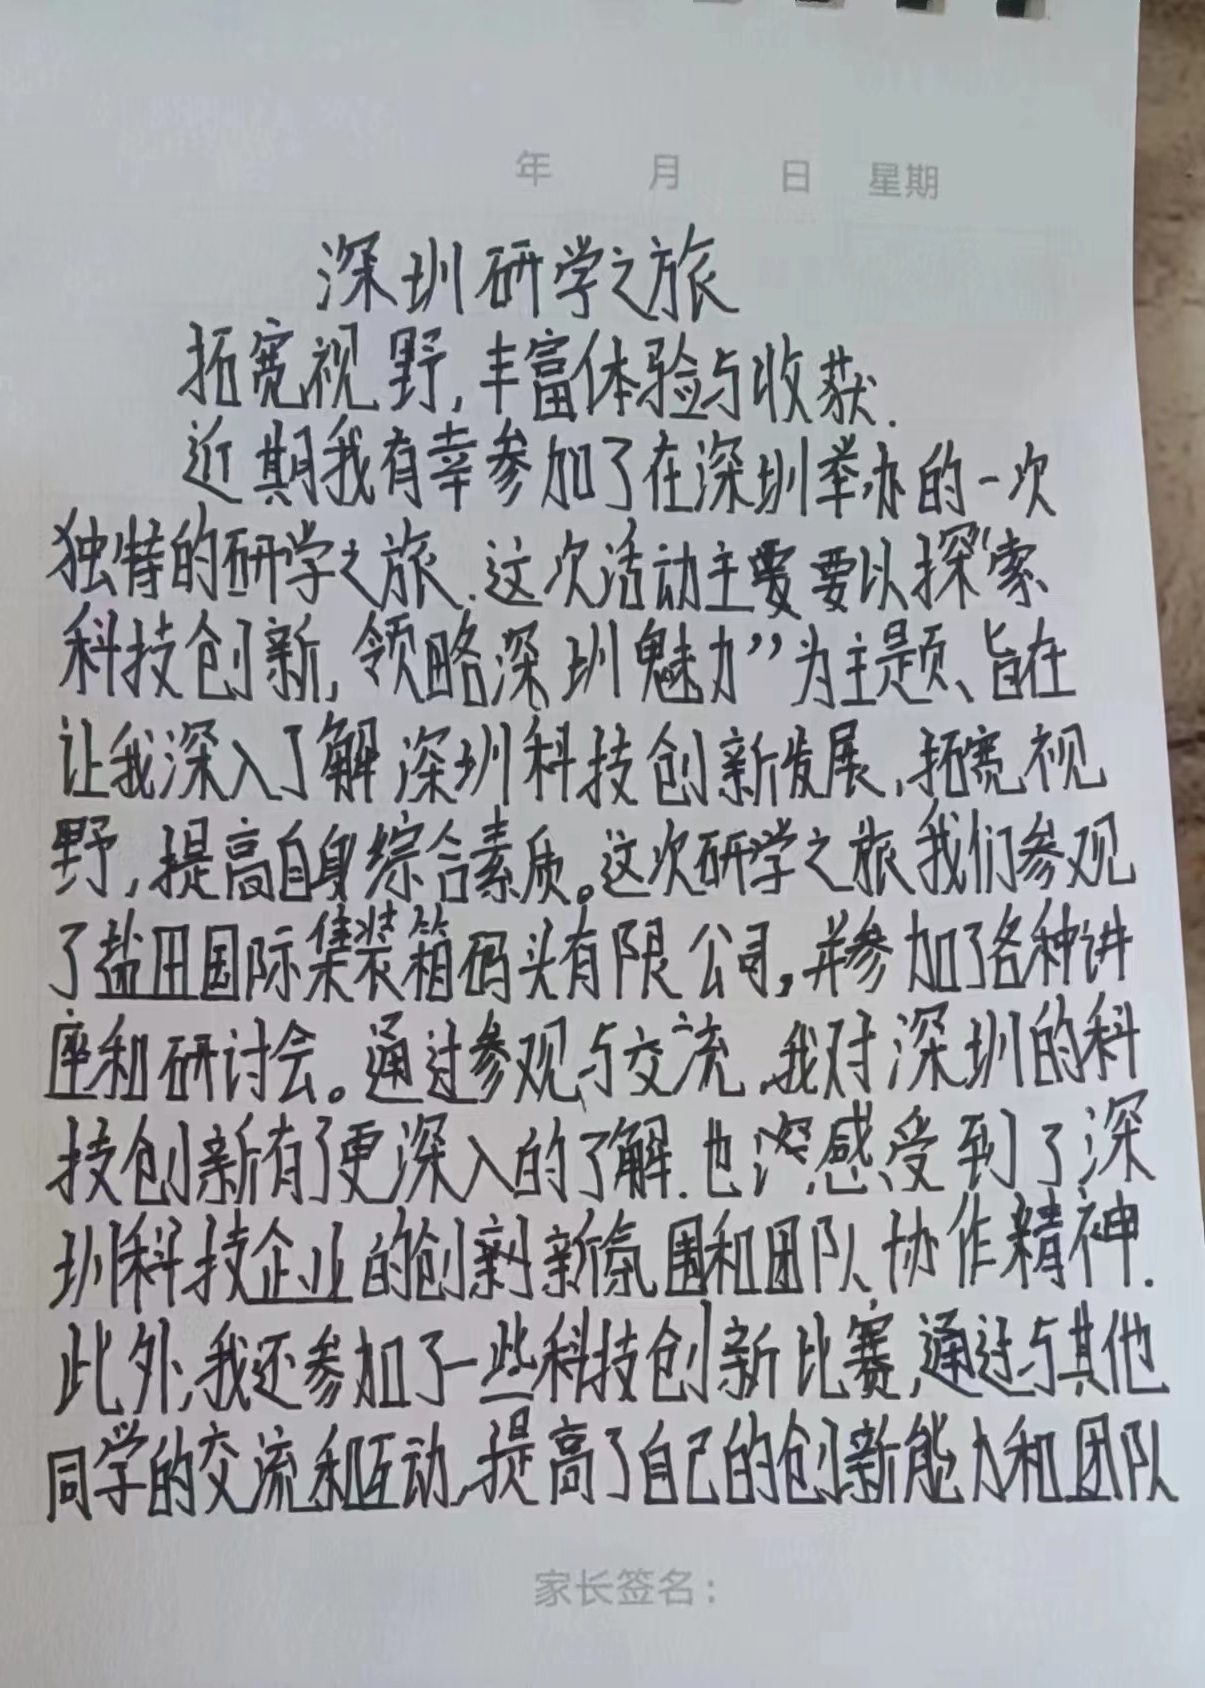 年 月 日 星期
深圳研学之旅
拓宽视野,丰富体验与收获.
近期我有幸参加了在深圳举办的一次
独特的研学之旅.这次活动主要要以探“索
科技创新,领略深圳魅力”为主题、旨在
让我深入了解深圳科技创新发展,拓宽视
野,提高自身综合素质。这次研学之旅我们参观
了盐田国际集装箱码头有限公司,并参加了各种讲
座和研讨会。通过参观与交流,我对深圳的科
技创新有了更深入的了解.也深感受到了深
圳科技企业的创新氛围和团队协作精神.
此外,我还参加了一些科技创新比赛,通过与其他
同学的交流和互动,提高了自己的创新能力和团队
家长签名: